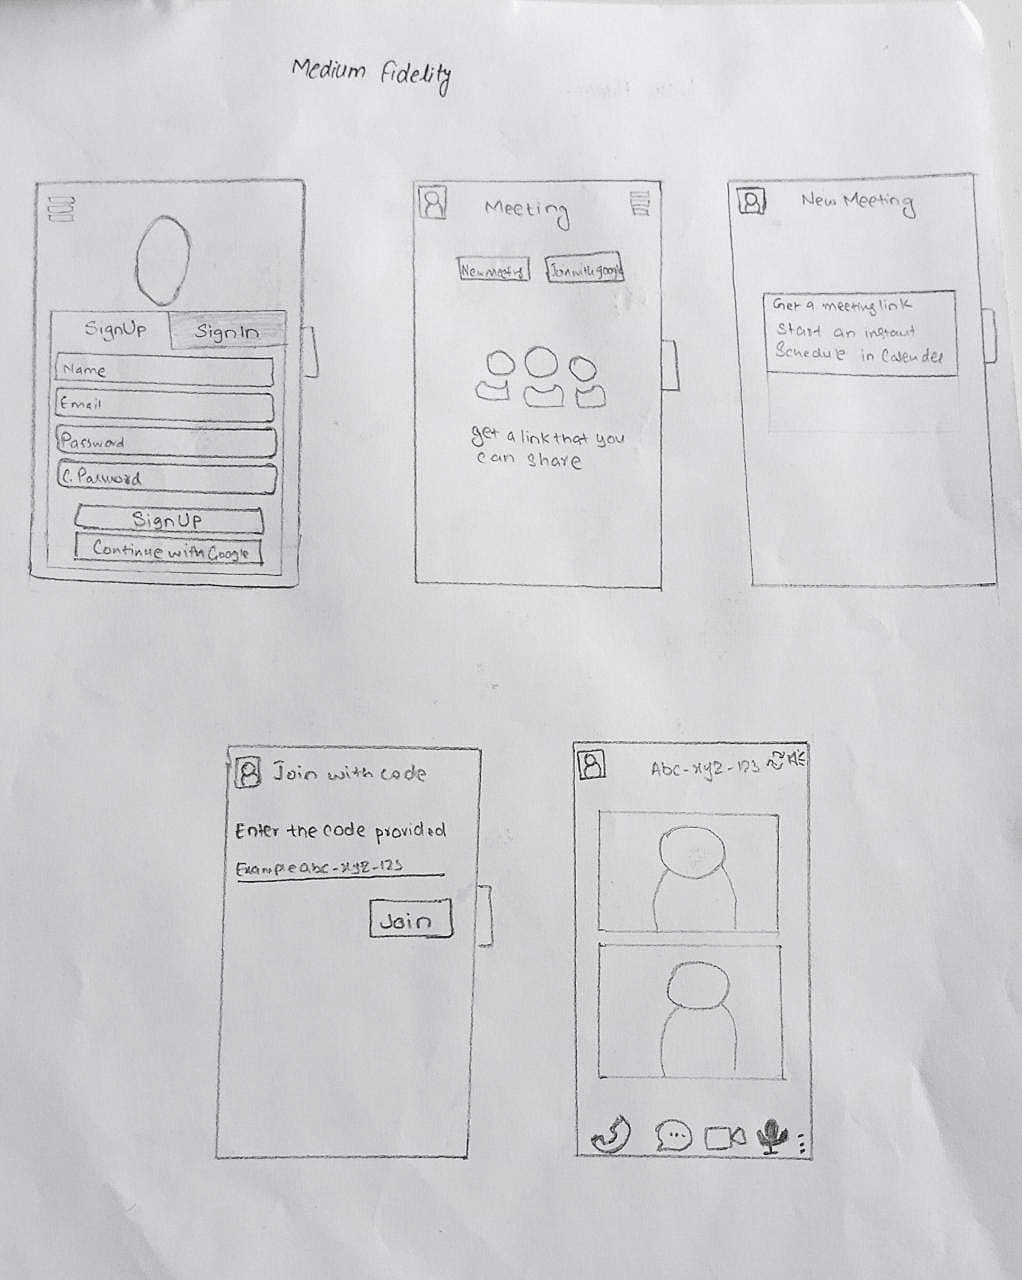 Medium Fidelity
SignUp
SignIn
Name
Email
Password
C. Password
SignUp
Continue with Google
Meeting
New meeting
Join with google
get a link that you
can share
New Meeting
Get a meeting link
Start an instant
Schedule in Calender
Join with code
Enter the code provided
Example abc-xyz-123
Join
Abc-xyz-123